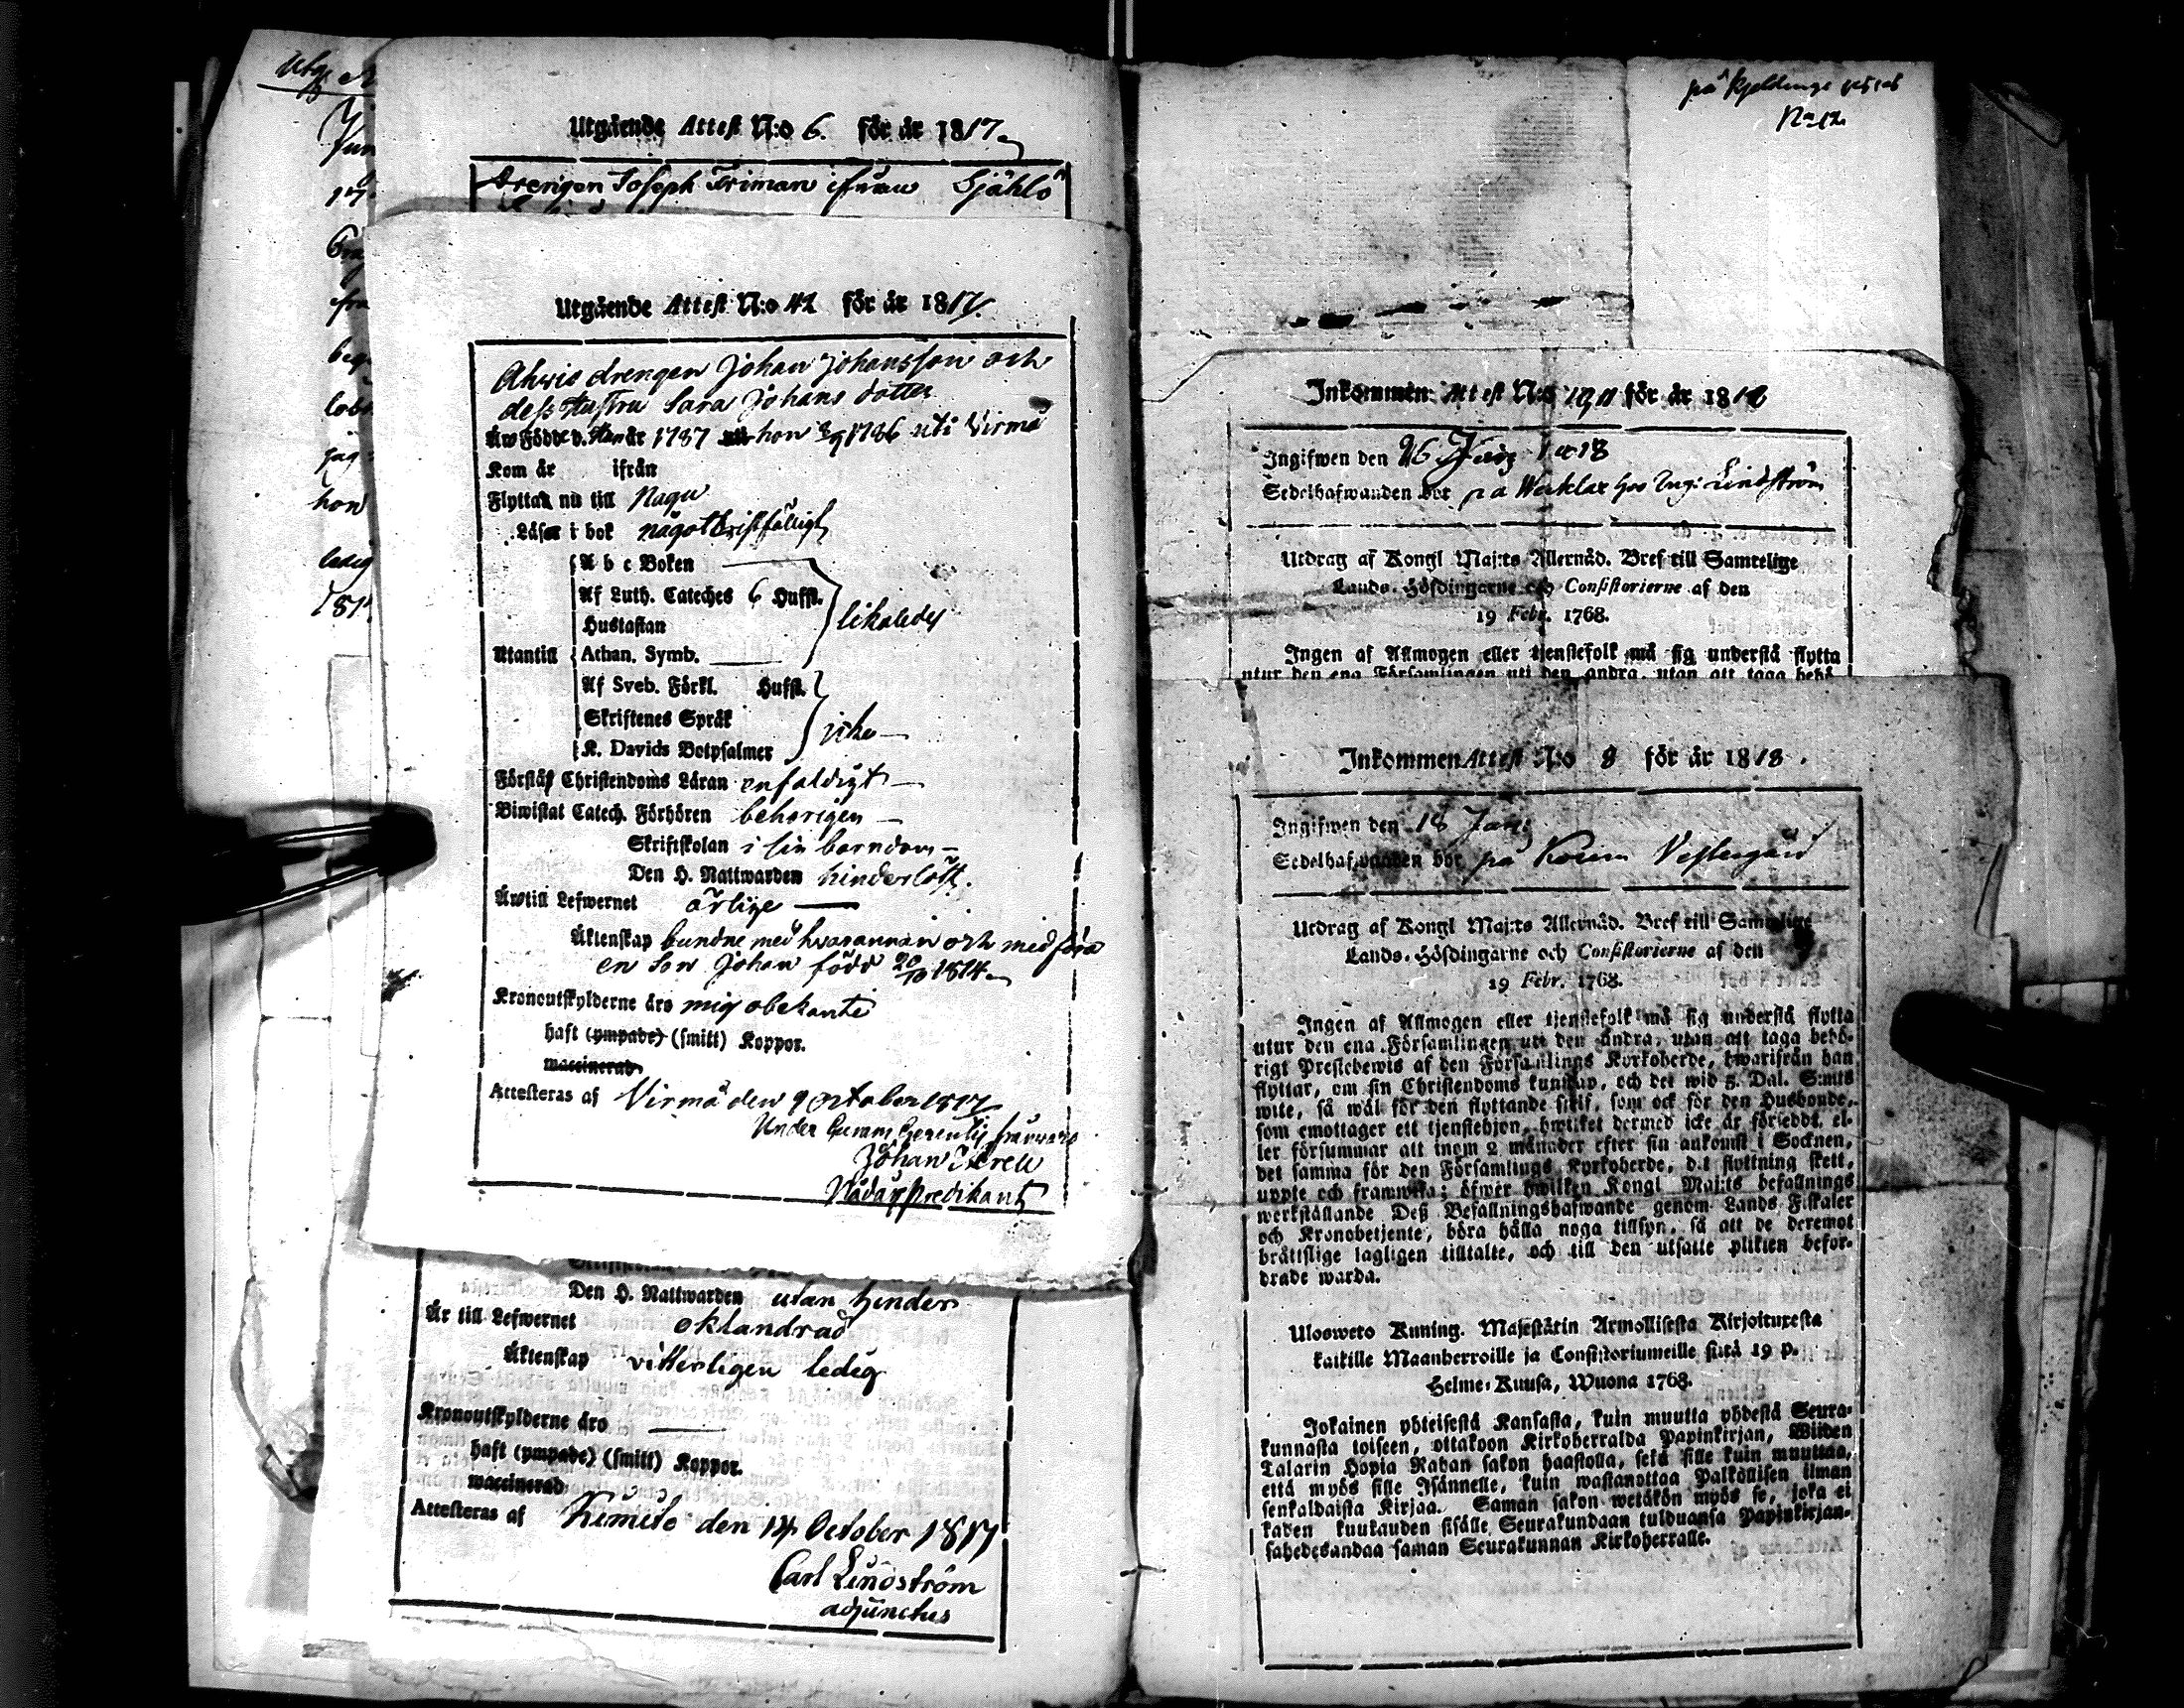 Utgående Attest N:o 6. för år 1817
Drengen Joseph Friman ifrån Sjählö
Utgående Attest N:o 42 för år 1817.
drengen Johan Johansson och
dess Hustru Sara Johans dotter
Äro Födde d. Han år 1787 hon 3/9 1786 uti Virmo
Kom år ifrån
Flyttar nu till Nagu
Läser i bok något bristfälligt
A b c Boken
Af Luth. Cateches 6 Hufst.
Hustaflan
likaledes
Utantill Athan. Symb.
Af Sveb. Förkl. Hufst.
Skriftenes Språk
icke
K. Davids Botpsalmer
Förstår Christendoms Läran enfaldigt
Biwistat Catech. Förhören behörigen
Skriftskolan i sin barndom
Den H. Nattwarden hinderlöst.
Äro till Lefwernet ärlige
Äktenskap bundne med hwarannan och medföra
en son Johan född 20/10 1814
Kronoutskylderne äro mig obekante
haft (ympade) (smitt) Koppor.
waccinerad
Attesteras af Virmo den 9 October 1817
Under
Johan
Nådårspredikant
Den H. Nattwarden utan hinder
Är till Lefwernet oklandrad
Äktenskap vitterligen ledig
Kronoutskylderne äro
haft (ympade) (smitt) Koppor.
waccinerad
Attesteras af Kimito den 14 October 1817
Carl Lindström
adjunctus
på Kjeldinge
No 12
Inkommen Attest N:o för år 1818
Ingifwen den 26 1818
Sedelhafwanden bor på hos Lindström
Utdrag af Kongl Maj:ts Allernåd. Bref till Samtelige
Lands-Höfdingarne och Consistorierne af den
19 Febr. 1768.
Ingen af Allmogen eller tjenstefolk må sig understå flytta
utur den ena Församlingen uti den andra, utan att taga behö-
Inkommen Attest N:o 8 för år 1818.
Ingifwen den 18
Sedelhafwanden bor på Westergård
Utdrag af Kongl Maj:ts Allernåd. Bref till Samtelige
Lands-Höfdingarne och Consistorierne af den
19 Febr. 1768.
Ingen af Allmogen eller tjenstefolk må sig understå flytta
utur den ena Församlingen uti den andra, utan att taga behö-
rigt Prestebewis af den Församlings Kyrkoherde, hwarifrån han
flyttar, om sin Christendoms kunskap, och det wid 5. Dal. S:mts
wite, så wäl för den flyttande sielf, som ock för den Husbonde,
som emottager ett tjenstehjon, hwilket dermed icke är försedt, el-
ler försummar att inom 2 månader efter sin ankomst i Socknen,
det samma för den Församlings Kyrkoherde, dit flyttning skett,
uppte och framwisa; öfwer hwilken Kongl Maj:ts befallnings
werkställande Deß Befallningshafwande genom Lands-Fiskaler
och Kronobetjente, böra hålla noga tillsyn, så att de deremot
bråttslige lagligen tilltalte, och till den utsatte plikten befor-
drade warda.
Ulosweto Kuning. Majestätin Armollisesta Kirjoituxesta
kaikille Maanherroille ja Consistoriumeille siitä 19 p.
Helme-Kuusa, Wuona 1768.
Jokainen yhteisestä Kansasta, kuin muutta yhdestä Seura-
kunnasta toiseen, ottakoon Kirkoherralda Papinkirjan, Wiiden
Talarin Hopia Rahan sakon haastolla, sekä sille kuin muuttaa,
että myös sille Isännelle, kuin wastanottaa Palkollisen ilman
senkaldaista Kirjaa. Saman sakon wetäkön myös se, joka ei
kahden kuukauden sisälle Seurakundaan tulduansa Papinkirjan-
sahedesandaa saman Seurakunnan Kirkoherralle.